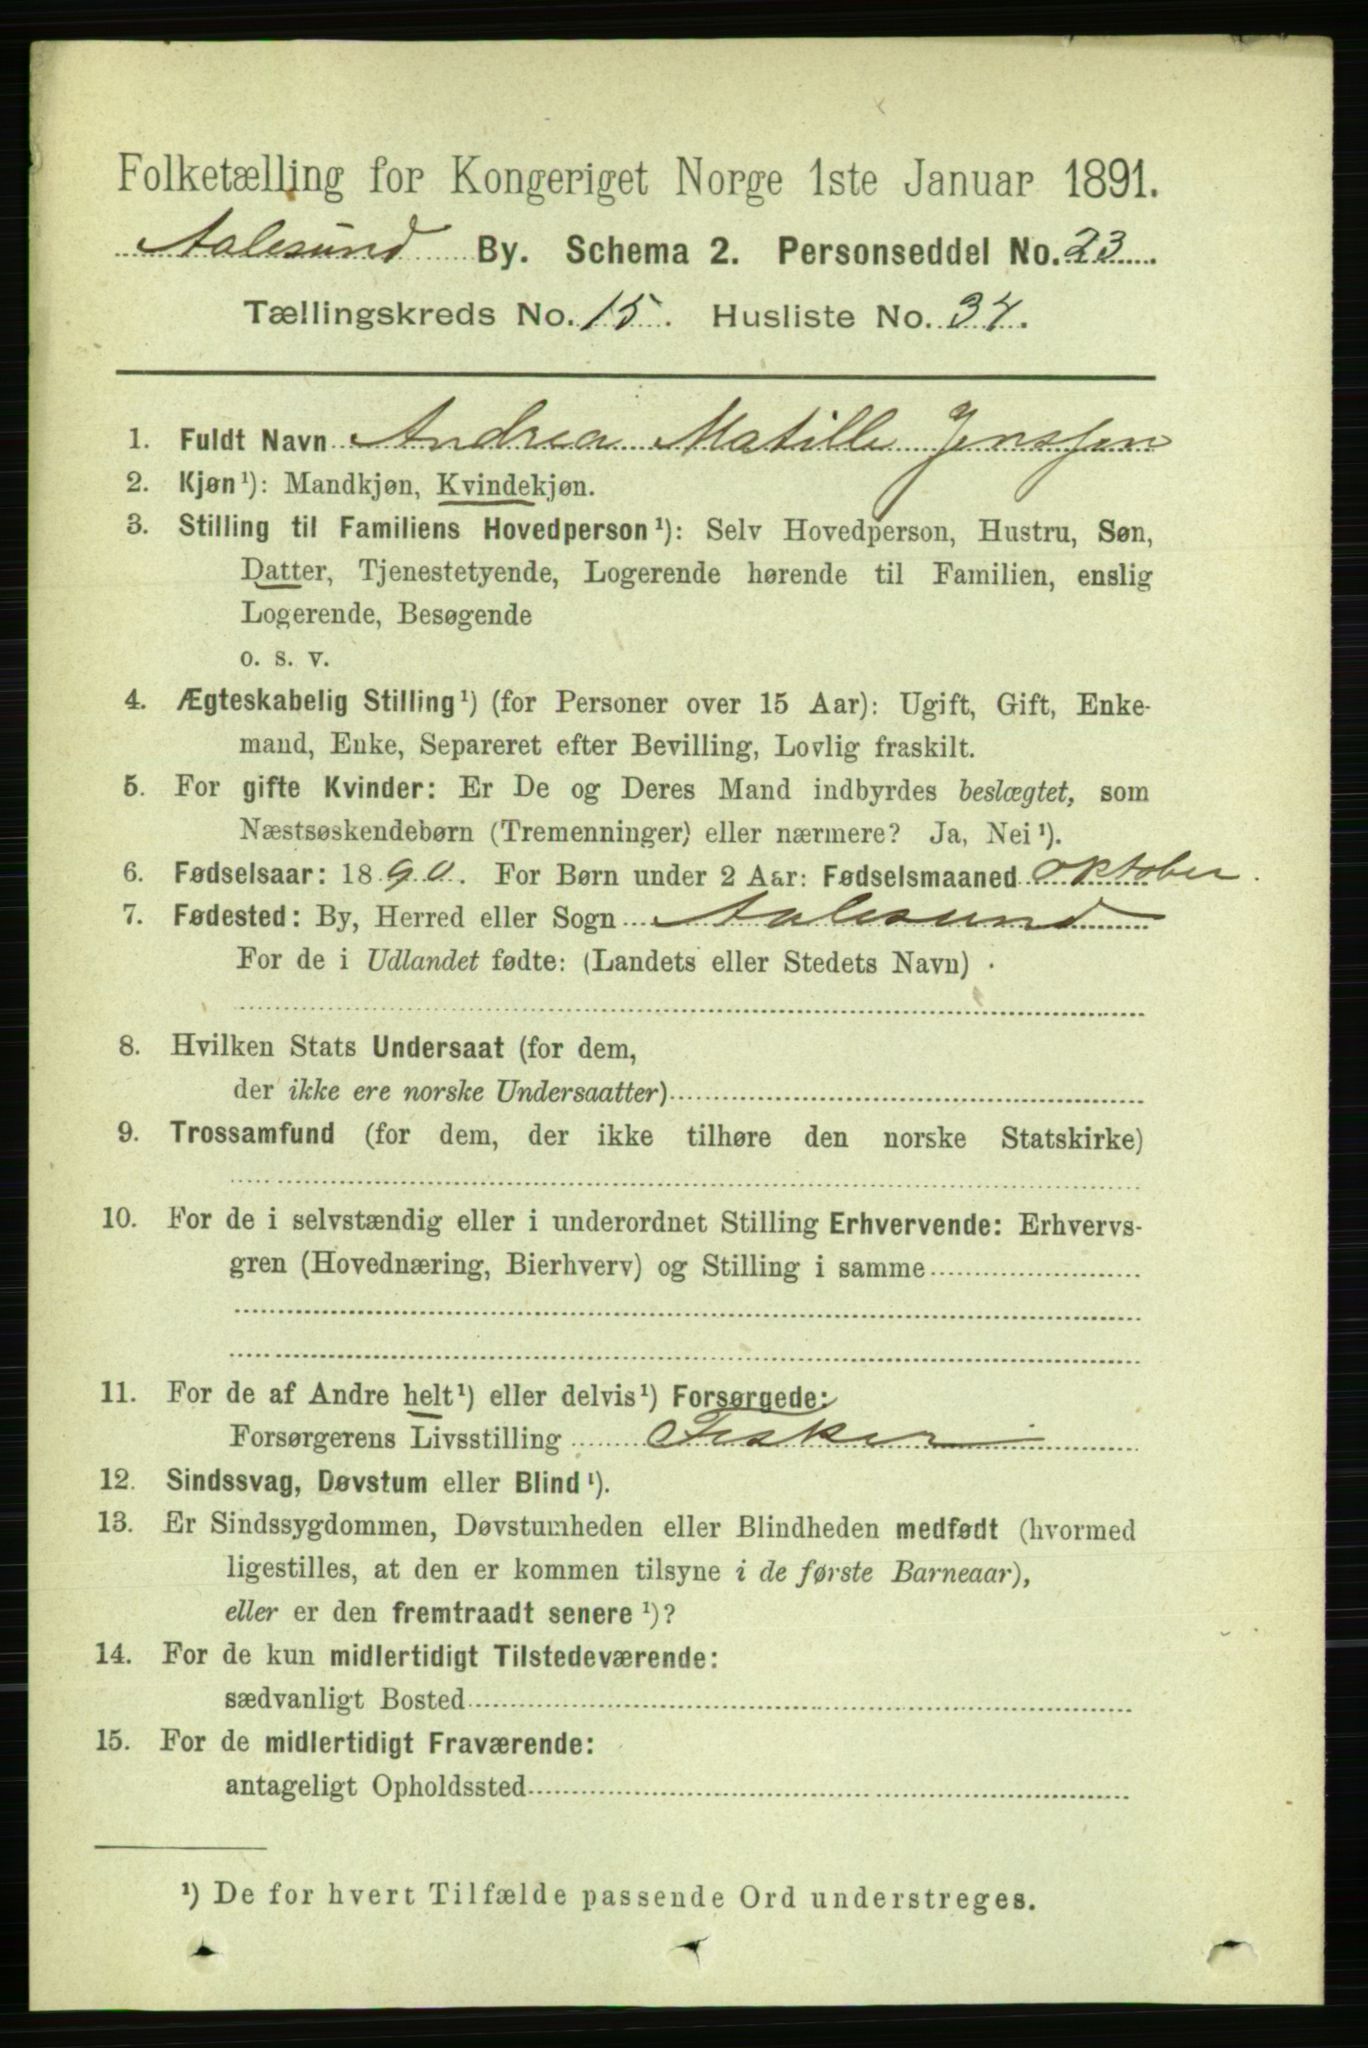 Folketælling for Kongeriget Norge 1ste Januar 1891.
Aalesund By. Schema 2. Personseddel No. 23
Tællingskreds No. 15. Husliste No. 34.
1. Fuldt Navn Andrea Matille Jenssen
2. Kjøn¹): Mandkjøn, Kvindekjøn.
3. Stilling til Familiens Hovedperson¹): Selv Hovedperson, Hustru, Søn,
Datter, Tjenestetyende, Logerende hørende til Familien, enslig
Logerende, Besøgende
o. s. v.
4. Ægteskabelig Stilling¹) (for Personer over 15 Aar): Ugift, Gift, Enke-
mand, Enke, Separeret efter Bevilling, Lovlig fraskilt.
5. For gifte Kvinder: Er De og Deres Mand indbyrdes beslægtet, som
Næstsøskendebørn (Tremenninger) eller nærmere? Ja, Nei¹).
6. Fødselsaar: 1890. For Børn under 2 Aar: Fødselsmaaned oktober.
7. Fødested: By, Herred eller Sogn Aalesund
For de i Udlandet fødte: (Landets eller Stedets Navn)
8. Hvilken Stats Undersaat (for dem,
der ikke ere norske Undersaatter)
9. Trossamfund (for dem, der ikke tilhøre den norske Statskirke)
10. For de i selvstændig eller i underordnet Stilling Erhvervende: Erhvervs-
gren (Hovednæring, Bierhverv) og Stilling i samme
11. For de af Andre helt¹) eller delvis¹) Forsørgede:
Forsørgerens Livsstilling Fisker
12. Sindssvag, Døvstum eller Blind¹).
13. Er Sindssygdommen, Døvstumheden eller Blindheden medfødt (hvormed
ligestilles, at den er kommen tilsyne i de første Barneaar),
eller er den fremtraadt senere¹)?
14. For de kun midlertidigt Tilstedeværende:
sædvanligt Bosted
15. For de midlertidigt Fraværende:
antageligt Opholdssted
¹) De for hvert Tilfælde passende Ord understreges.